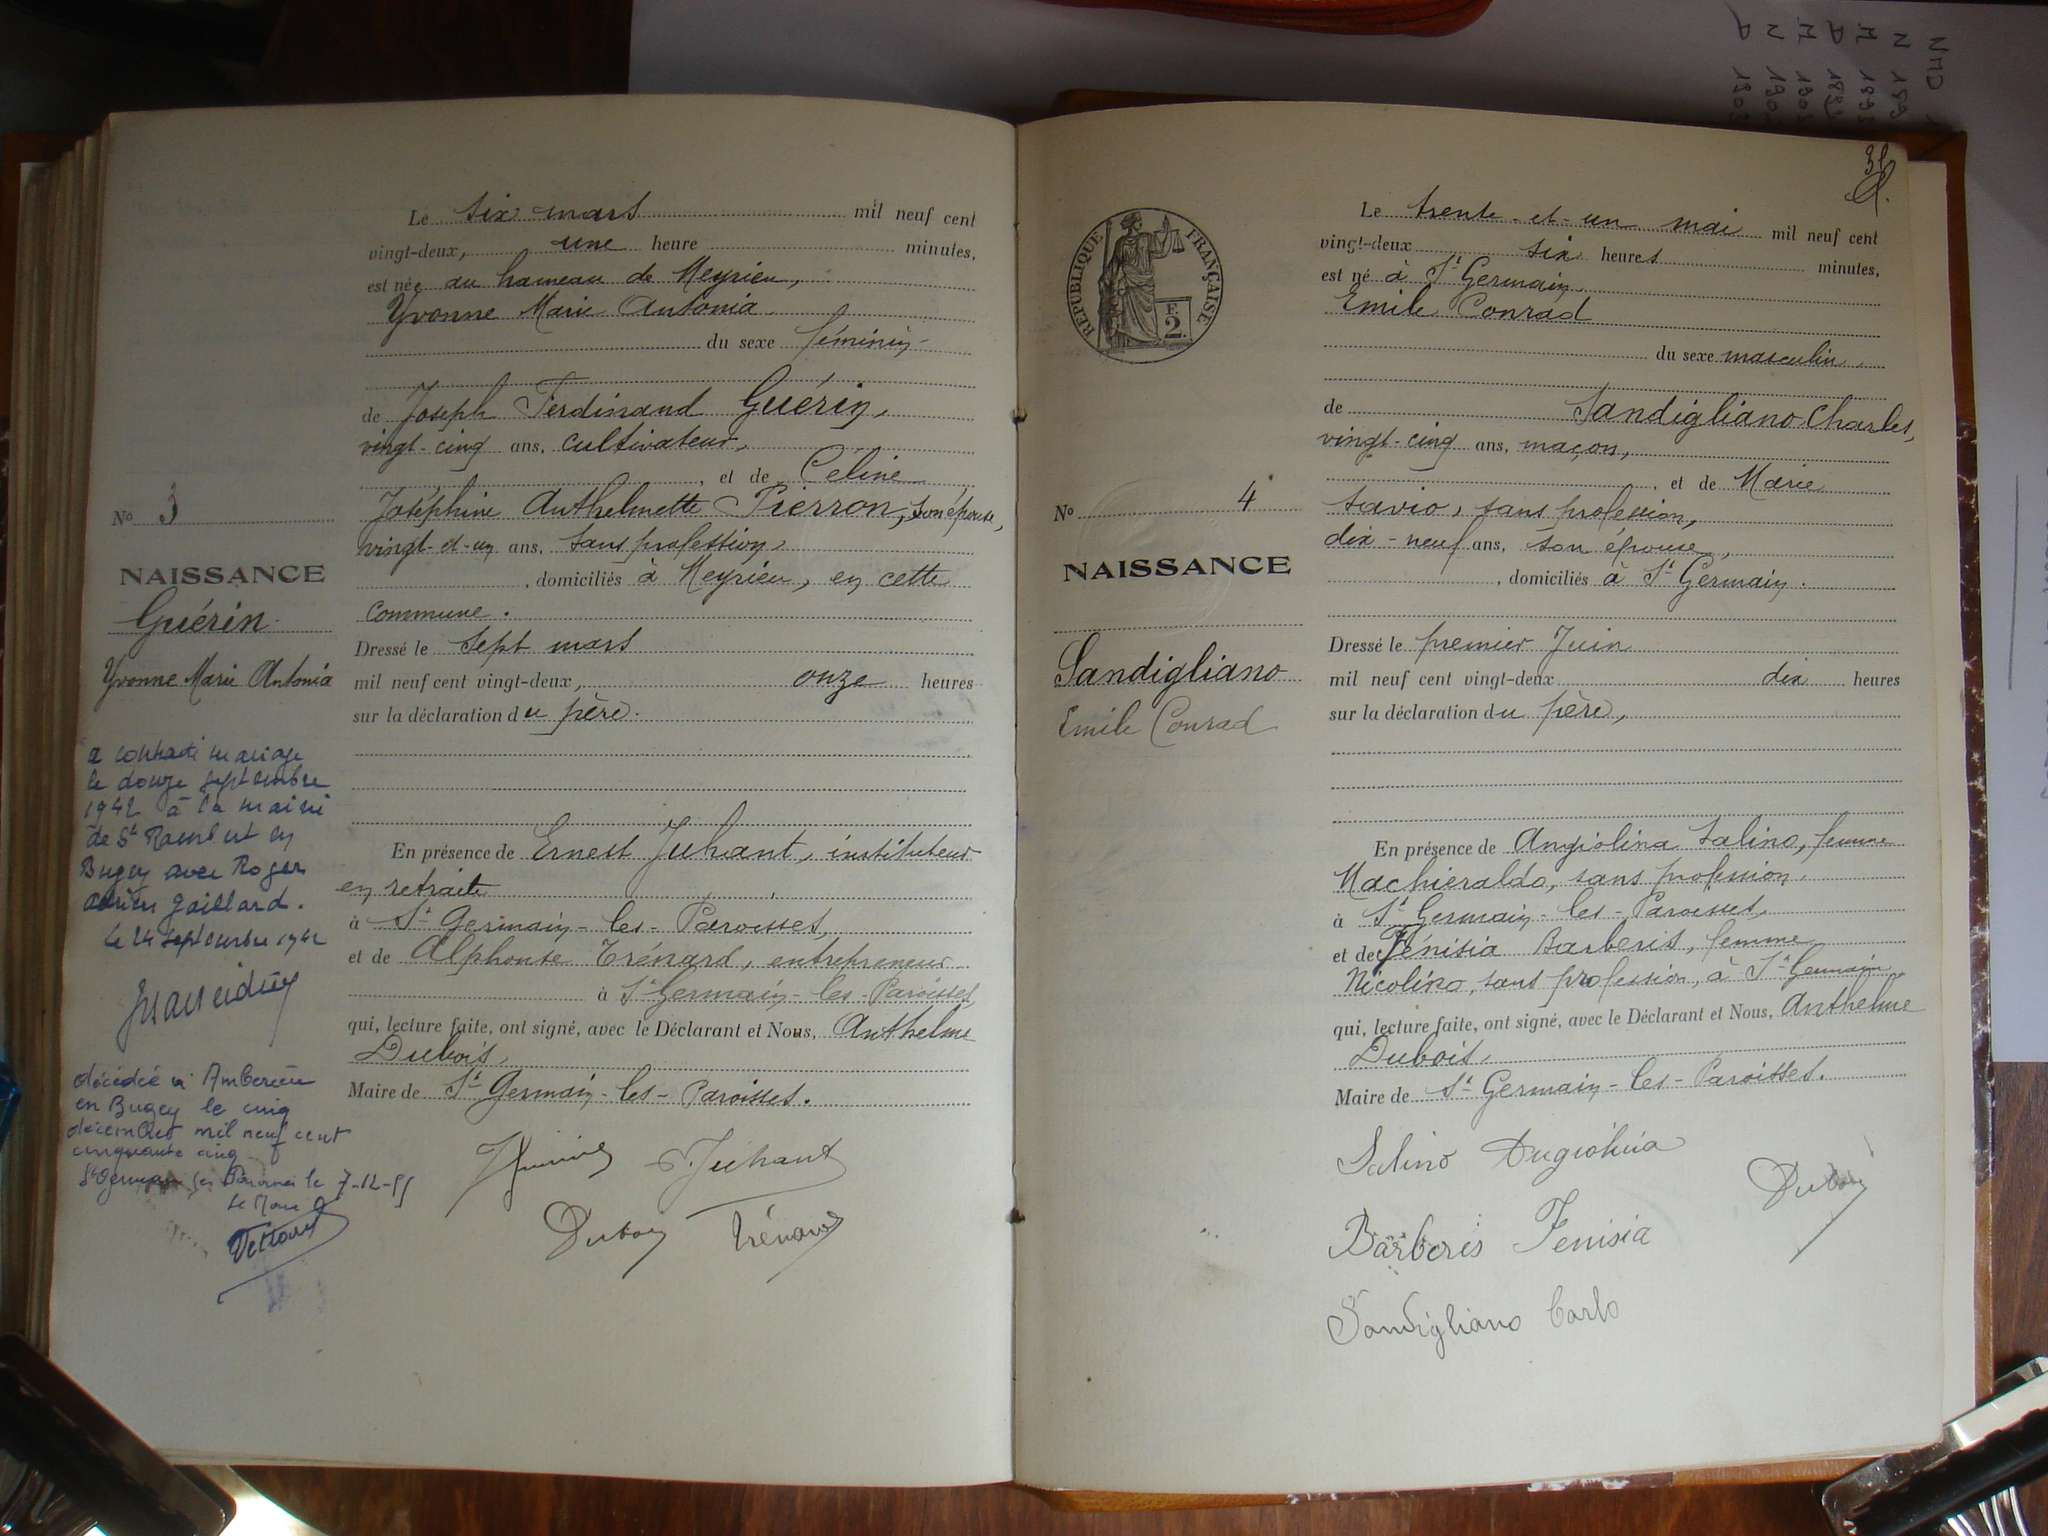 Le six mars mil neuf cent
vingt-deux, une heure minutes,
est née au hameau de Meyrieu,
Yvonne Marie Antonia
du sexe féminin
de Joseph Ferdinand Guérin,
vingt-cinq ans, cultivateur,
, et de Celine
Joséphine Anthelmette Pierron, son épouse,
vingt-et-un ans, sans profession,
, domiciliés à Meyrieu, en cette
commune.
Dressé le sept mars
mil neuf cent vingt-deux, onze heures
sur la déclaration du père.
En présence de Ernest Juhant, instituteur
en retraite
à St Germain-les-Paroisses,
et de Alphonse Trénard, entrepreneur
à St Germain-les-Paroisses,
qui, lecture faite, ont signé, avec le Déclarant et Nous, Anthelme
Dubois,
Maire de St Germain-les-Paroisses.
Juhant
Dubois Trénard
No 3
NAISSANCE
Guérin
Yvonne Marie Antonia
a contracté mariage
le douze septembre
1942 à la mairie
de St Rambert en
Bugey avec Roger
Gaillard.
le 24 septembre 1942
décédée à Ambérieu
en Bugey le cinq
décembre mil neuf cent
cinquante cinq
St Germain les Paroisses le 7-12-55
Le Maire
REPUBLIQUE FRANÇAISE
F.
2
No 4
NAISSANCE
Sandigliano
Emile Conrad
Le trente-et-un mai mil neuf cent
vingt-deux six heures minutes,
est né à St Germain
Emile Conrad
du sexe masculin,
de Sandigliano Charles,
vingt-cinq ans, maçon,
, et de Marie
Savio, sans profession,
dix-neuf ans, son épouse,
, domiciliés à St Germain.
Dressé le premier Juin
mil neuf cent vingt-deux dix heures
sur la déclaration du père,
En présence de Angiolina Salino, femme
Machieraldo, sans profession,
à St Germain-les-Paroisses,
et de Fénisia Barberis, femme
Nicolino, sans profession, à St Germain
qui, lecture faite, ont signé, avec le Déclarant et Nous, Anthelme
Dubois,
Maire de St Germain-les-Paroisses.
Salino Angiolina
Dubois
Barberis Fenisia
Sandigliano Carlo